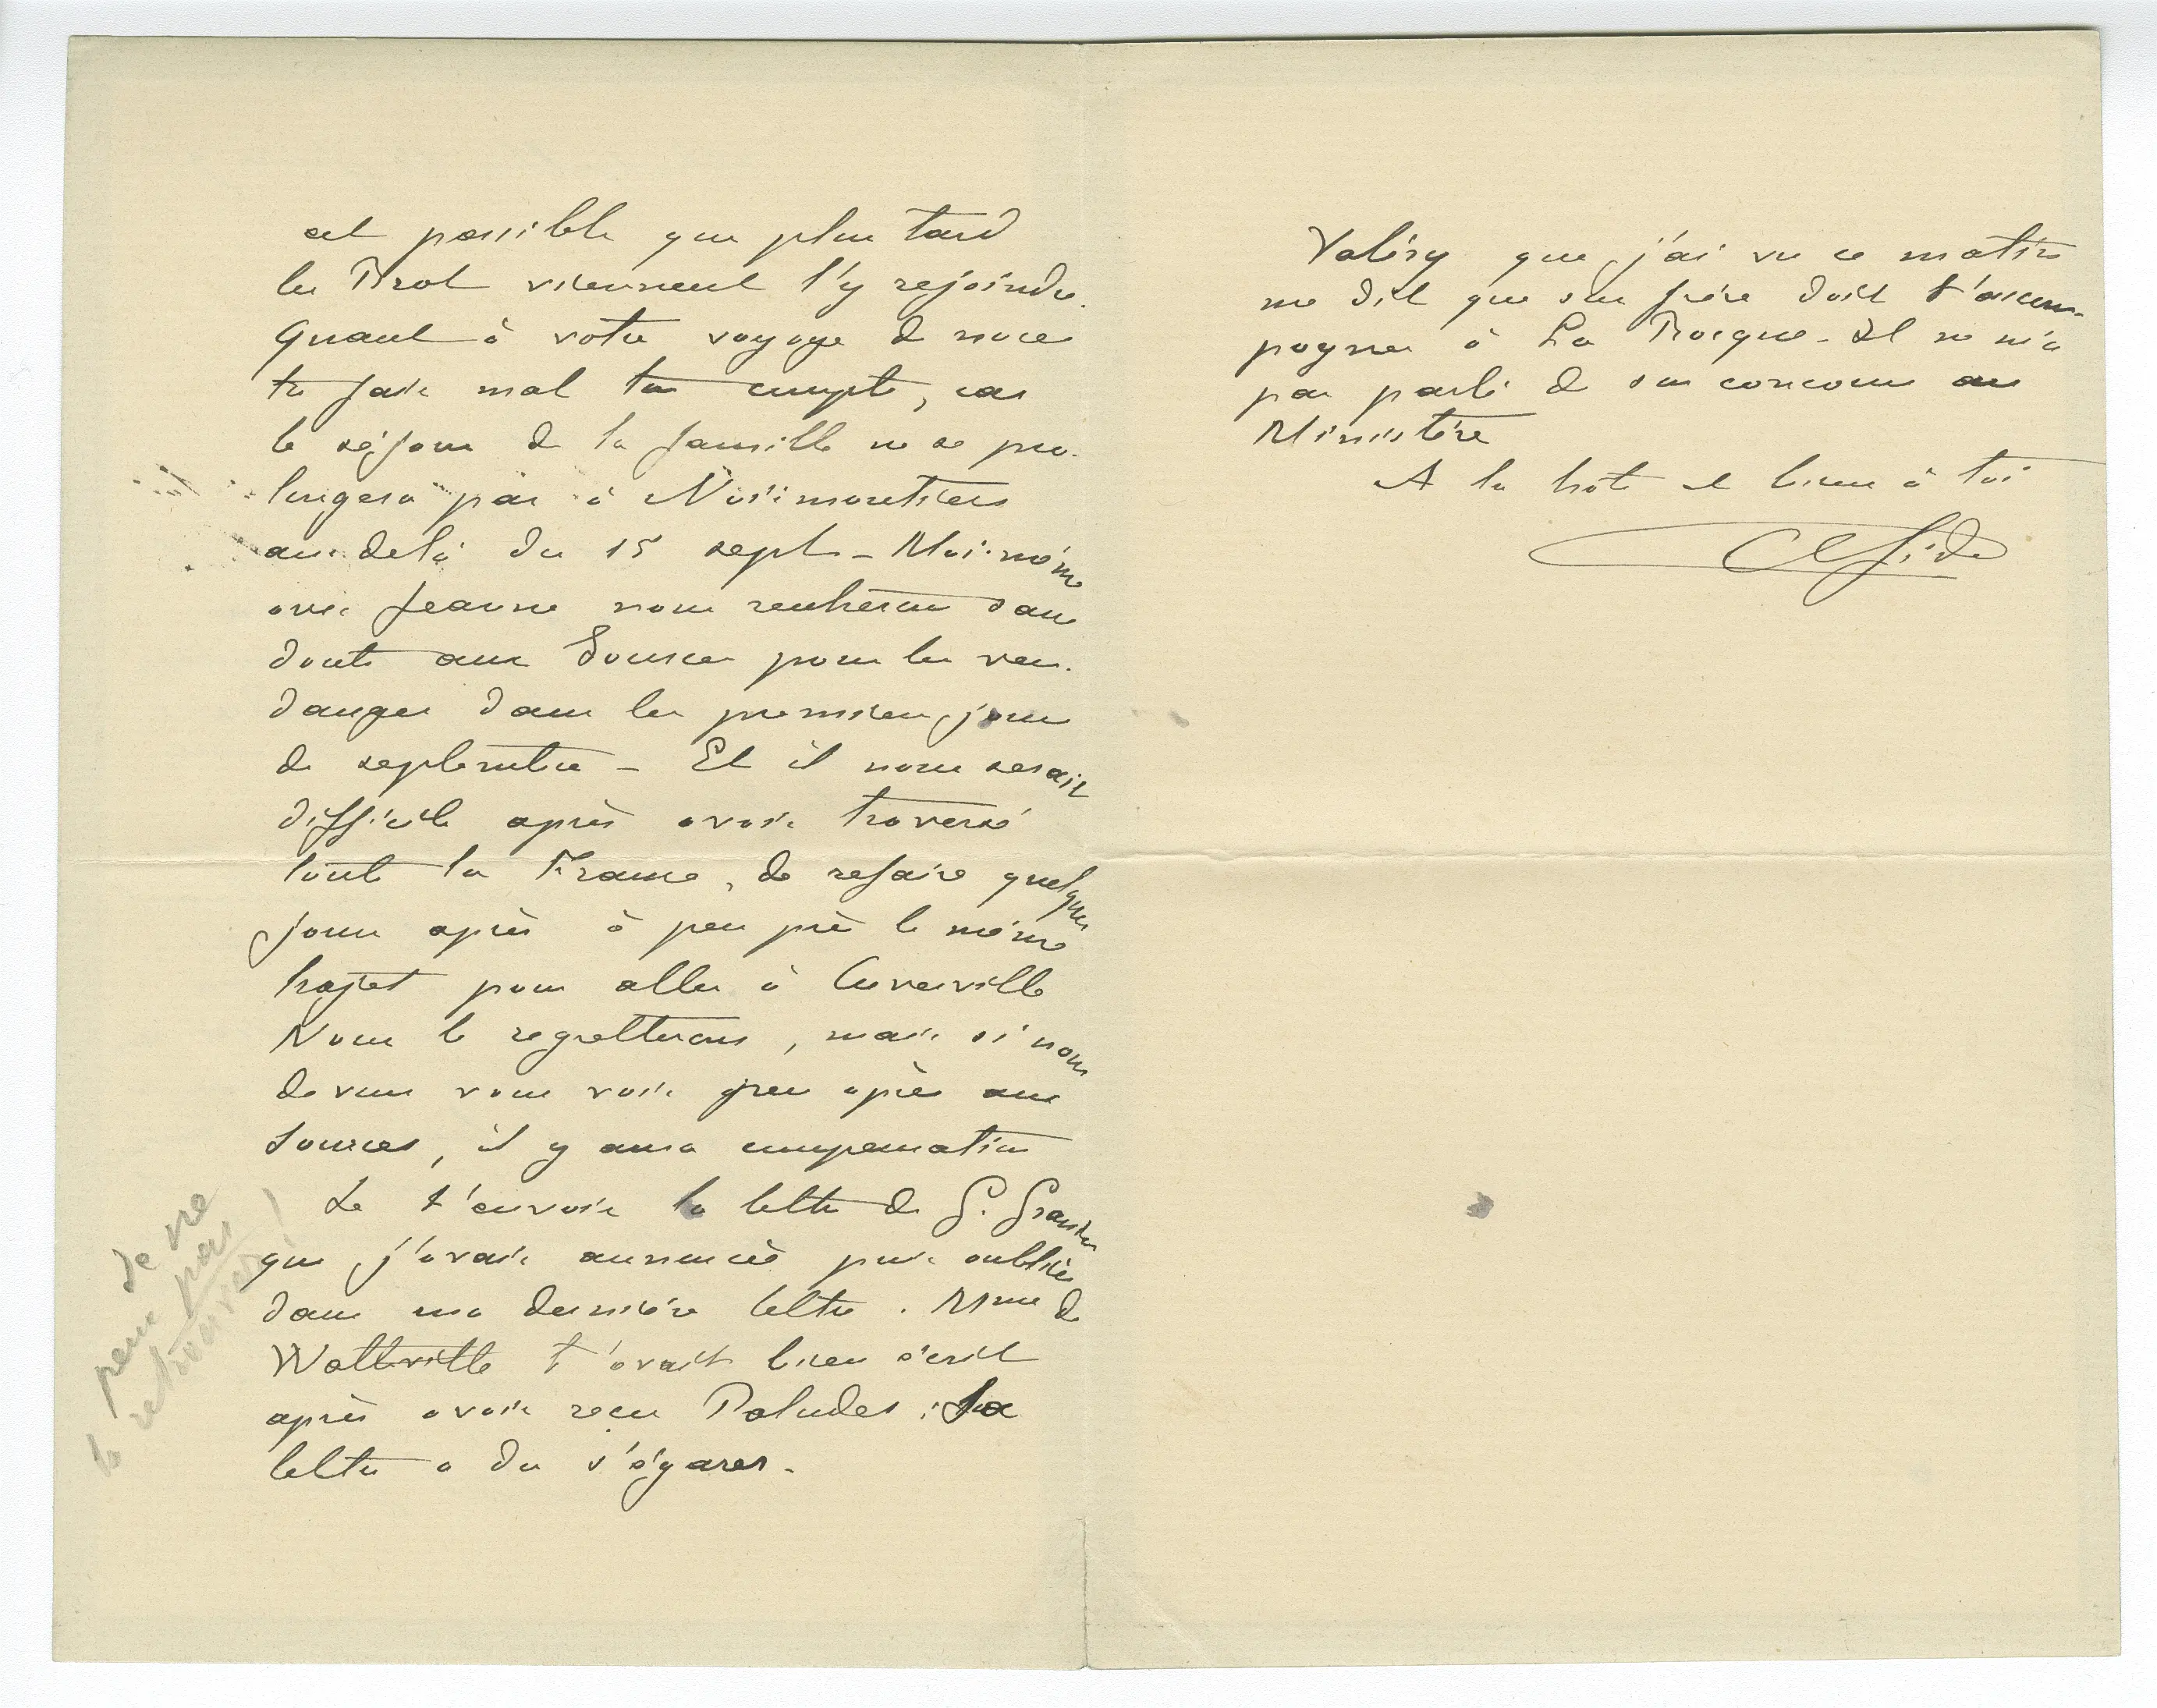 est possible que plus tard
les Brot viennent l'y rejoindre.
Quant à votre voyage de noce
tu fais mal ton compte, car
le séjour de la famille ne se pro-
longera pas à Noirmoutiers
au-delà du 15 sept - Moi-même
avec Jeanne nous rentrerons sans
doute aux Sources pour les ven-
danges dans les premiers jours
de septembre - Et il nous serait
difficile après avoir traversé
toute la France, de refaire quelques
jours après à peu près le même
trajet pour aller à Cuverville
Nous le regretterons, mais si nous
devons vous voir peu après aux
Sources, il y aura compensation
Je t'envoie la lettre de G.
que j'avais annoncée puis oubliée
dans ma dernière lettre. Mme de
Watteville t'avait bien écrit
après avoir reçu Paludes; sa
lettre a du s'égarer.
Je ne
peux pas
la retrouver!
Valéry que j'ai vu ce matin
me dit que son frère doit t'accom-
pagner à La Rocque - Il ne m'a
pas parlé de son concours au
Ministère
A la hâte et bien à toi
Ch Gide